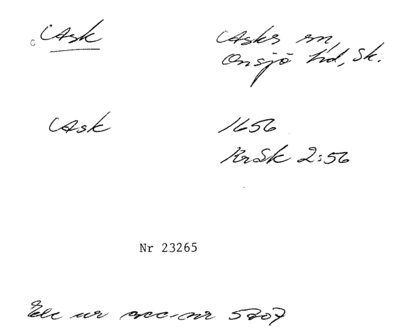 Ask Asks sn,
Onsjö hd, Sk.
Ask 1656
KrSk 2:56
Nr 23265
Exc ur acc-nr 5707